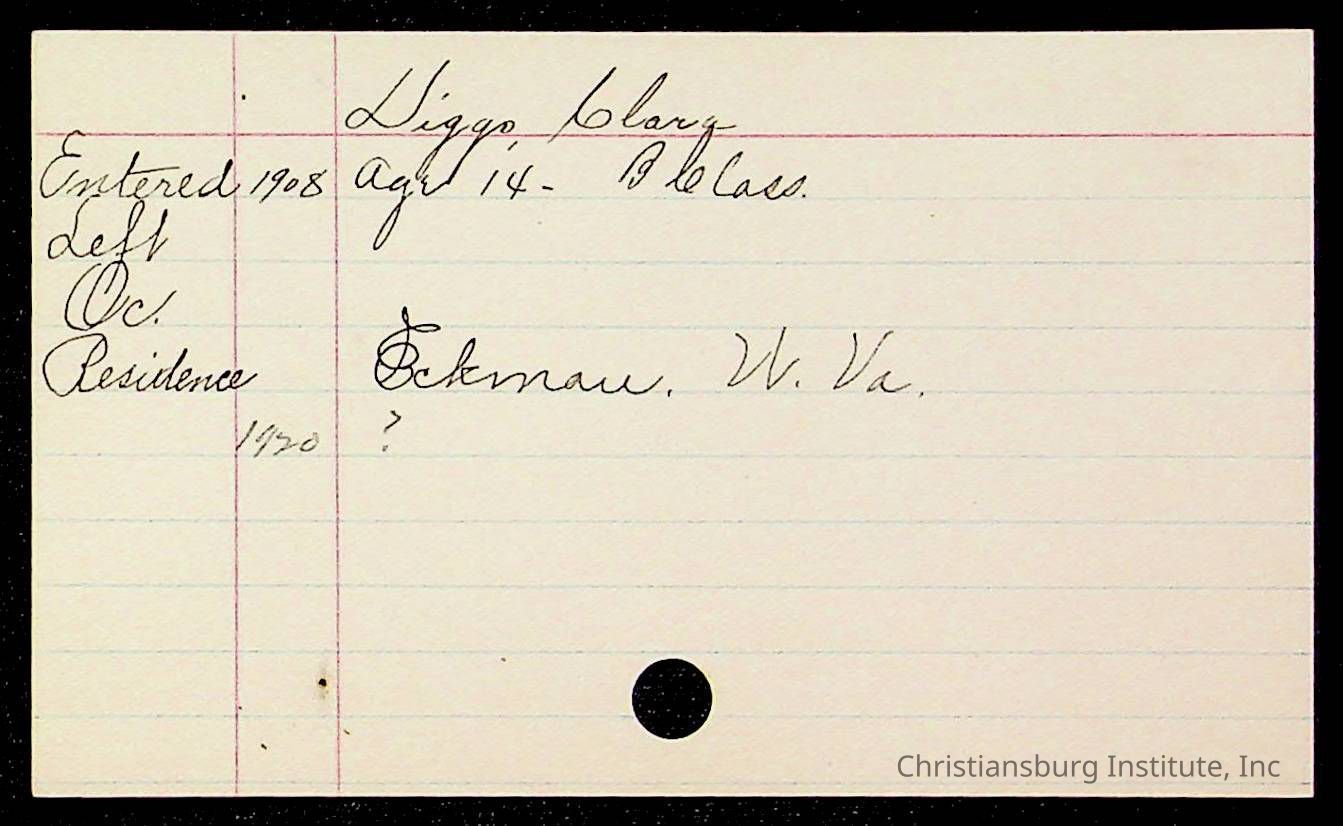 Diggs, Clara
Entered 1908 Age 14- B Class.
Left
Oc.
Residence Eckman. W. Va.
1920 ?
Christiansburg Institute, Inc